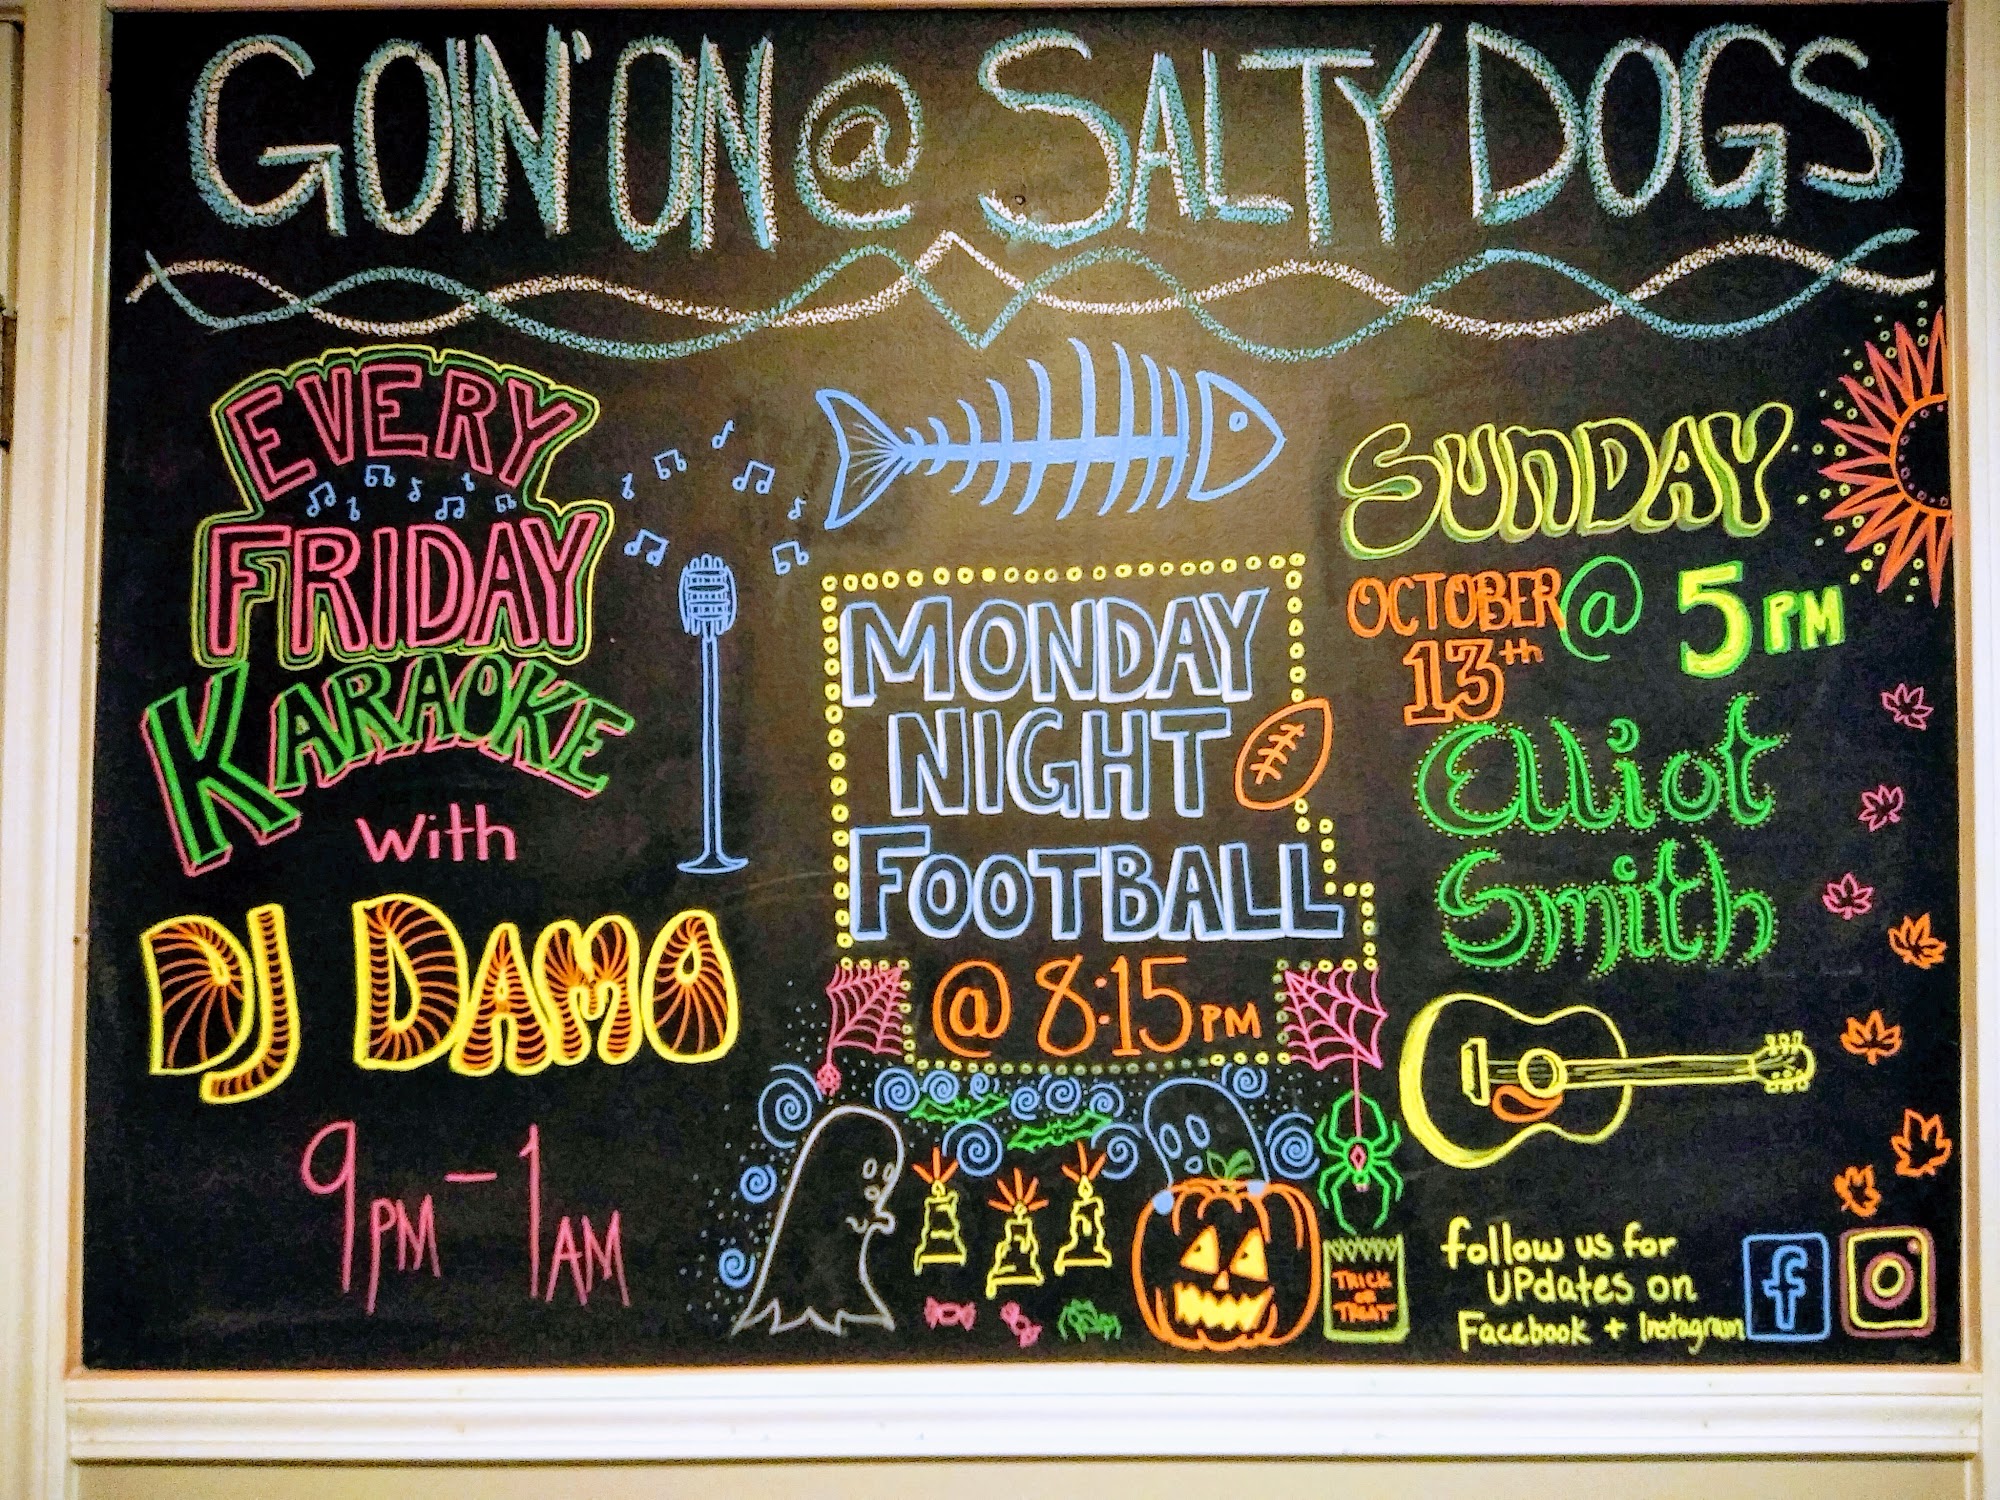 GOIN' ON @ SALTY DOGS
EVERY
FRIDAY
KARAOKE
with
DJ DAMO
9PM - 1AM
MONDAY
NIGHT
FOOTBALL
@ 8:15PM
SUNDAY
OCTOBER @ 5PM
13th
Elliot
Smith
TRICK
OR
TREAT
follow us for
UPdates on
Facebook + Instagram
f